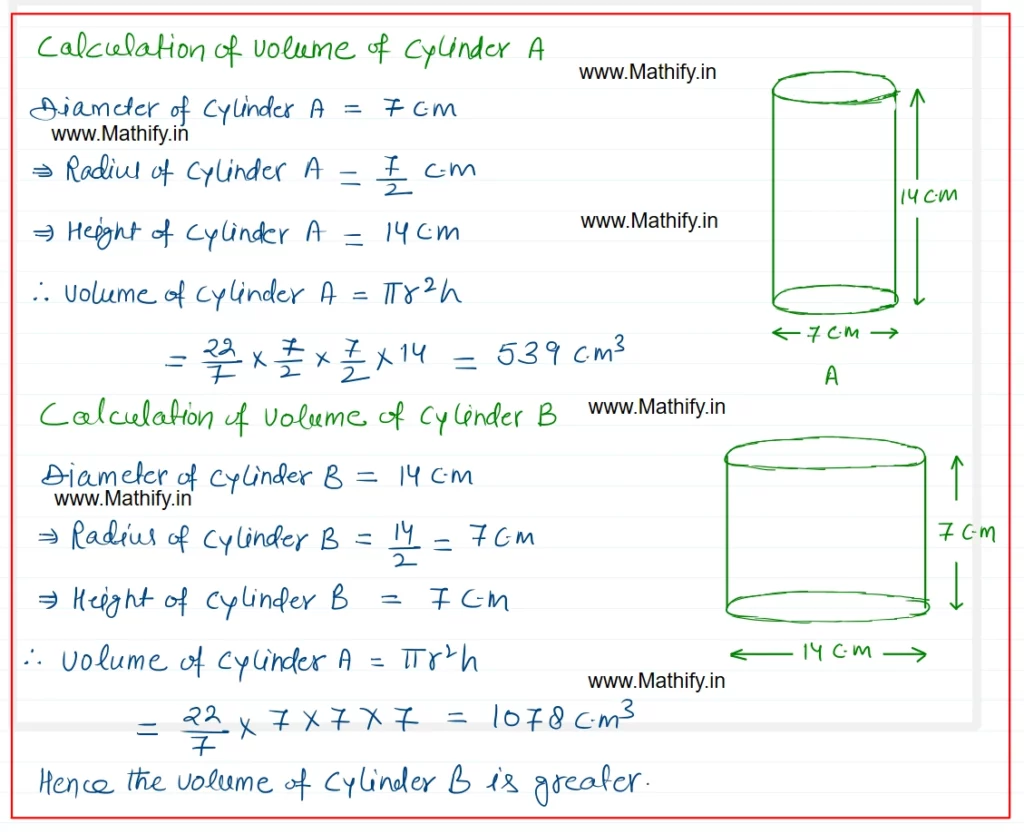 Calculation of volume of cylinder A
www.Mathify.in
Diameter of cylinder A = 7 cm
www.Mathify.in
⇒ Radius of cylinder A = 7/2 cm
⇒ Height of cylinder A = 14 cm
www.Mathify.in
14 cm
∴ volume of cylinder A = πr²h
7 cm
= 22/7 × 7/2 × 7/2 × 14 = 539 cm³
A
Calculation of volume of cylinder B
www.Mathify.in
Diameter of cylinder B = 14 cm
www.Mathify.in
⇒ Radius of cylinder B = 14/2 = 7 cm
7 cm
⇒ Height of cylinder B = 7 cm
∴ volume of cylinder A = πr²h
14 cm
www.Mathify.in
= 22/7 × 7 × 7 × 7 = 1078 cm³
Hence the volume of cylinder B is greater.